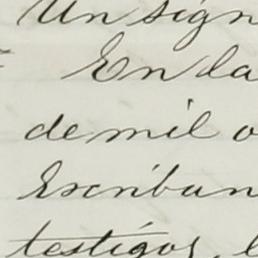 Un sign
En la
de mil o
Escriban
testigos, l